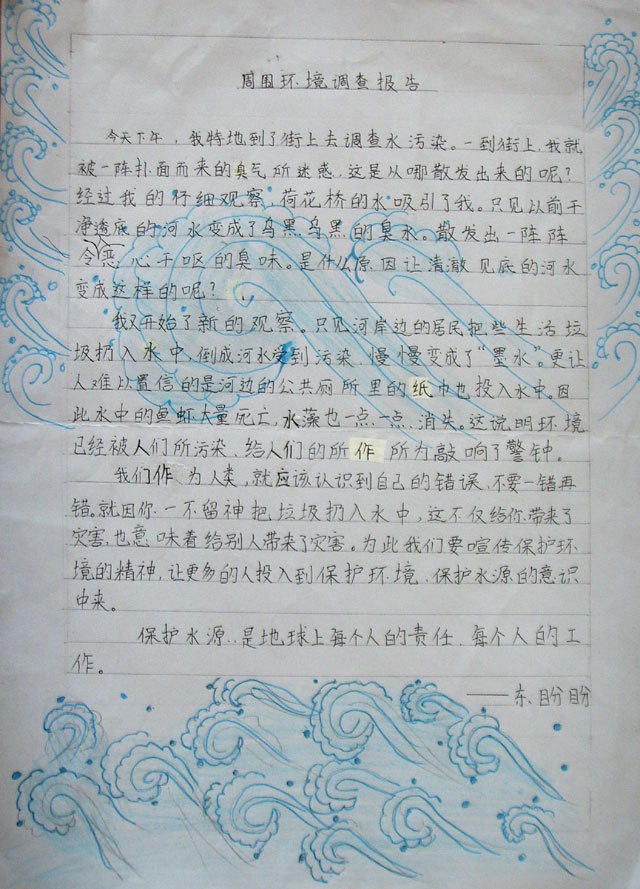 周围环境调查报告
今天下午，我特地到了街上去调查水污染。一到街上，我就
被一阵扑面而来的臭气所迷惑，这是从哪散发出来的呢？
经过我的仔细观察，荷花桥的水吸引了我。只见以前干
净透底的河水变成了乌黑、乌黑的臭水。散发出一阵阵
令恶心干呕的臭味。是什么原因让清澈见底的河水
变成这样的呢？
我又开始了新的观察。只见河岸边的居民把些生活垃
圾扔入水中，倒成河水受到污染，慢慢变成了“墨水”。更让
人难以置信的是河边的公共厕所里的纸巾也投入水中。因
此水中的鱼虾大量死亡，水藻也一点、一点、消失。这说明环境
已经被人们所污染，给人们的所作所为敲响了警钟。
我们作为人类，就应该认识到自己的错误，不要一错再
错。就因你一不留神把垃圾扔入水中，这不仅给你带来了
灾害，也意味着给别人带来了灾害。为此我们要喧传保护环
境的精神，让更多的人投入到保护环境、保护水源的意识
中来。
保护水源，是地球上每个人的责任、每个人的工
作。
——东、盼盼